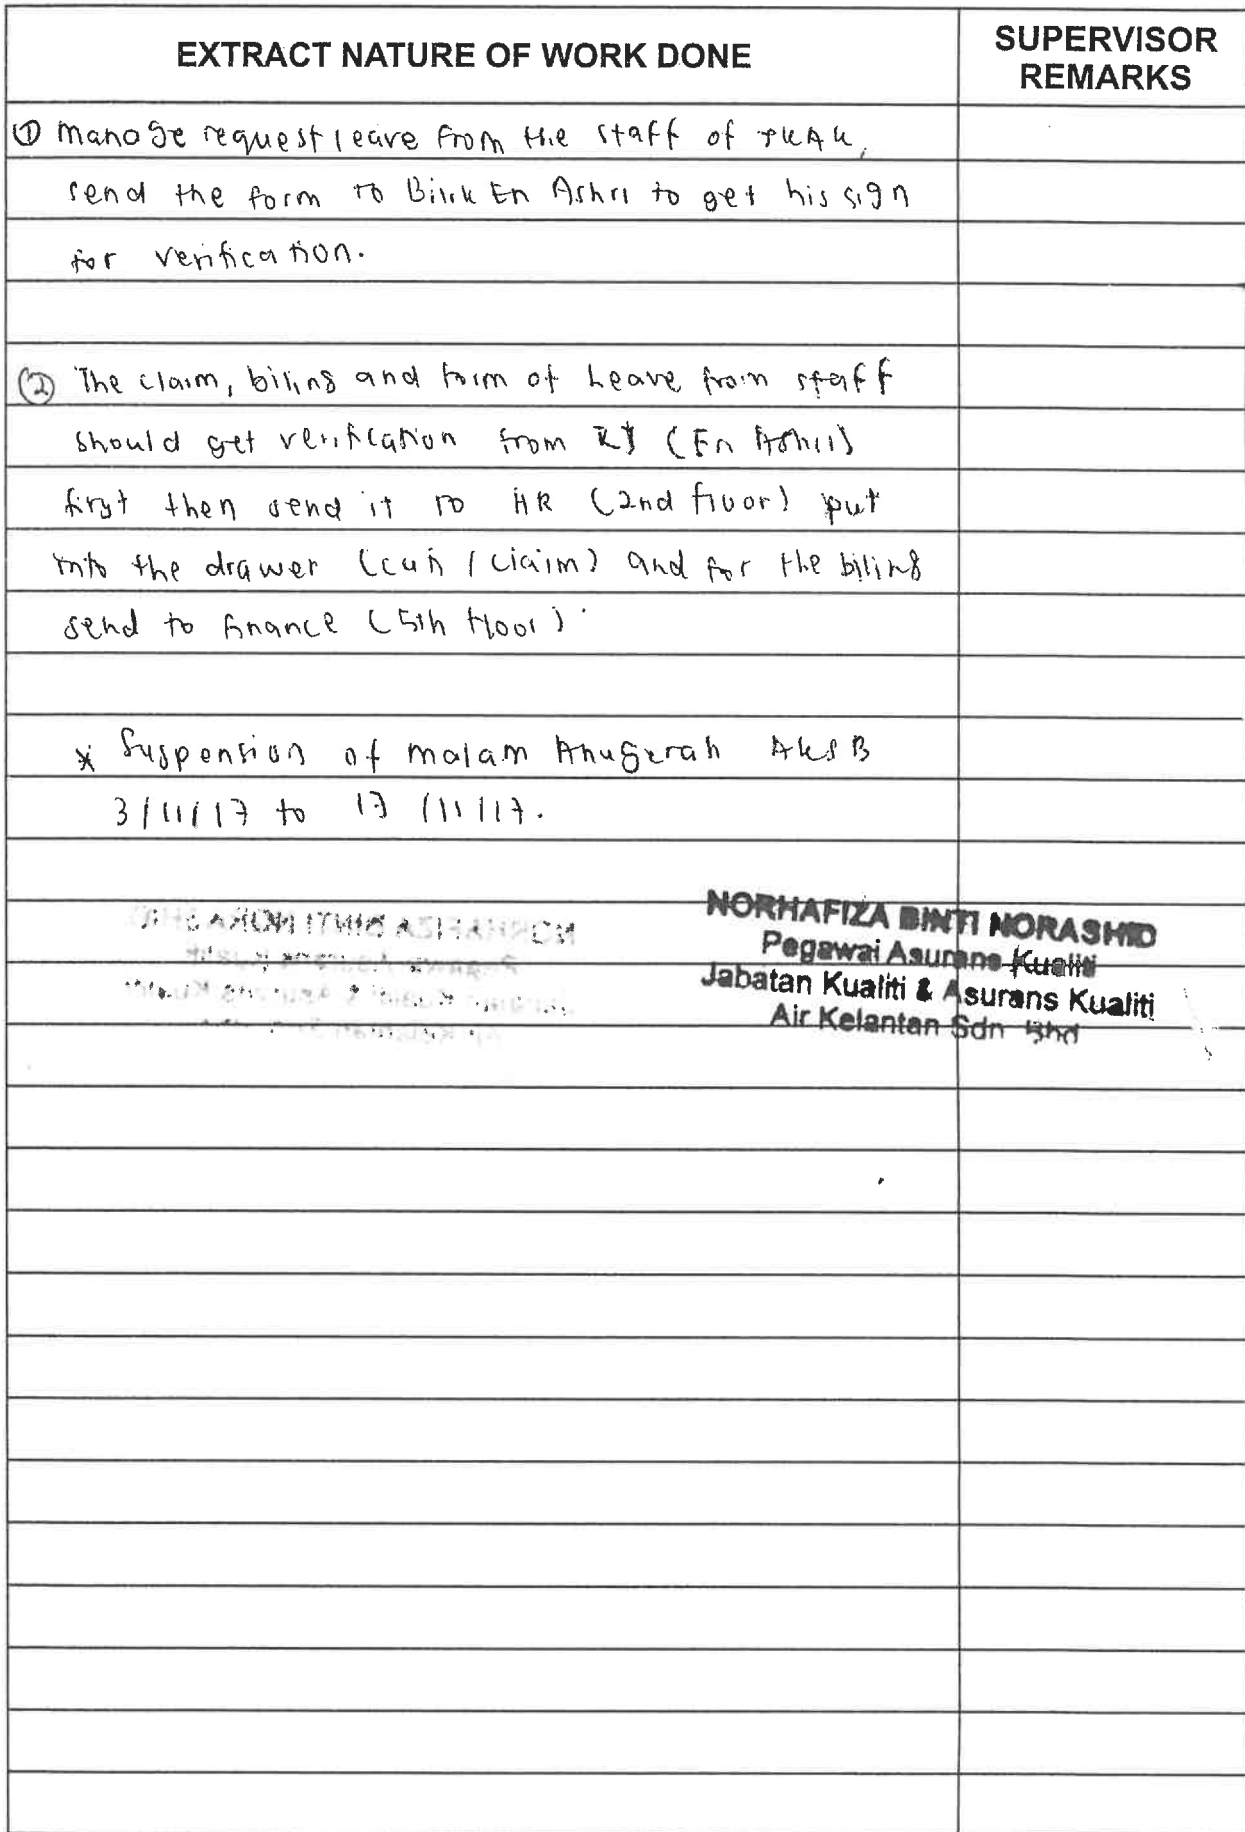 EXTRACT NATURE OF WORK DONE
SUPERVISOR
REMARKS
① Manage request leave from the staff of JKAK,
send the form to Bilik En Ashri to get his sign
for verification.
② The claim, biling and form of Leave from staff
should get verification from (En Ashri)
first then send it to HR (2nd floor) put
into the drawer (cuti / claim) and for the biling
send to finance (5th floor).
* Suspension of malam Anugerah AKSB
3/11/17 to 17/11/17.
NORHAFIZA BINTI NORASHID
Pegawai Asurans Kualiti
Jabatan Kualiti & Asurans Kualiti
Air Kelantan Sdn Bhd